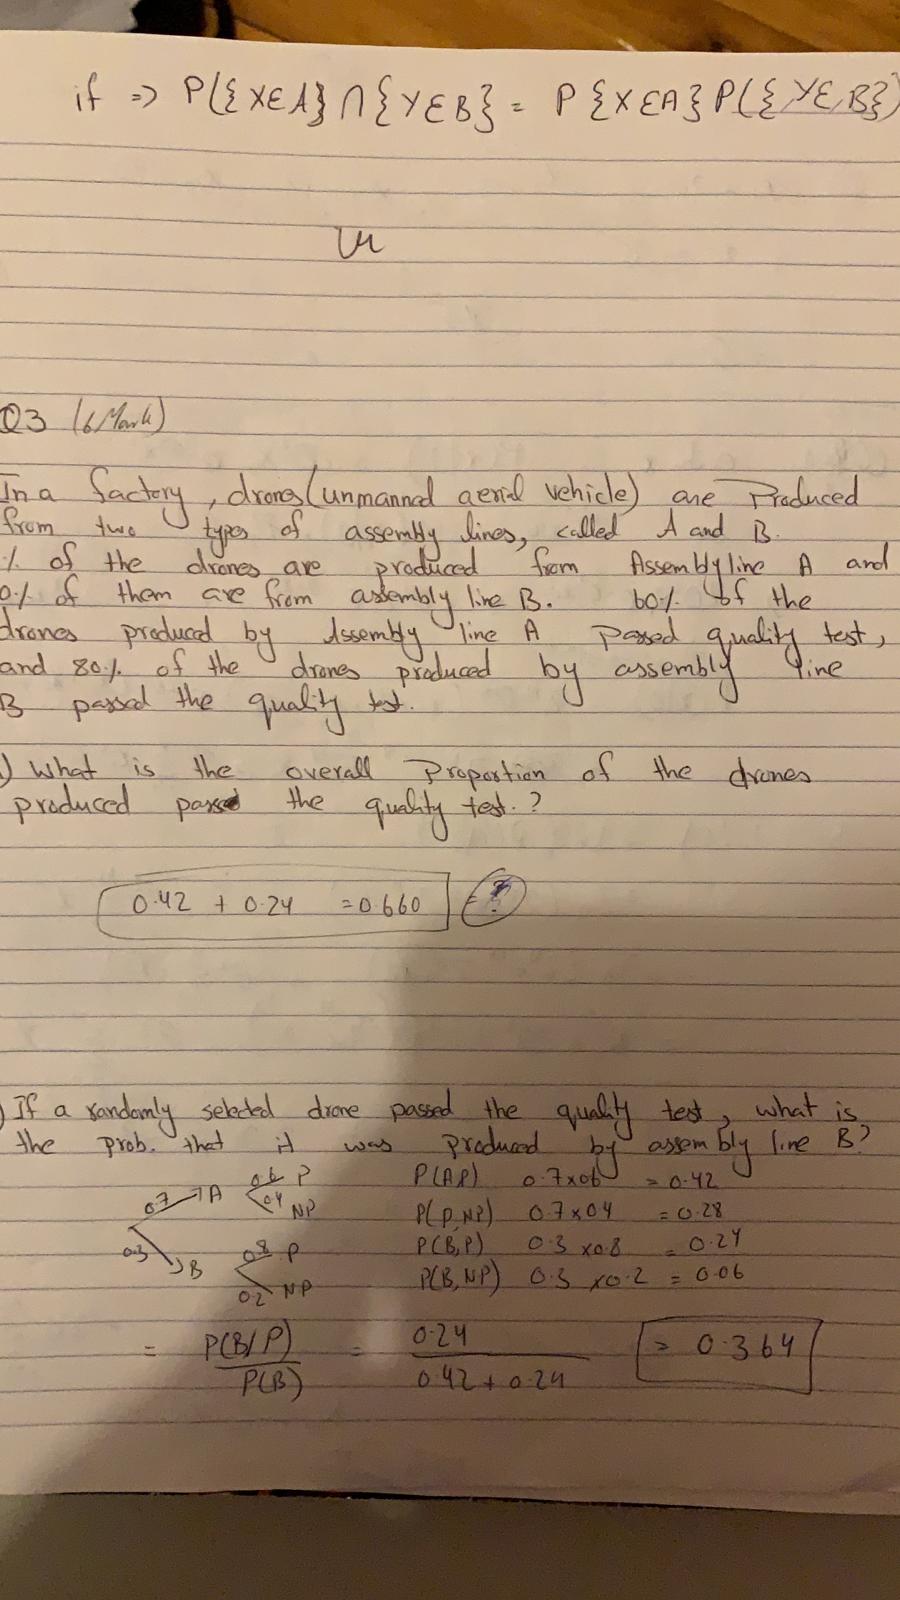 if => P({XEA} ∩ {YEB} = P{XEA} P({YEB})
Q3 (6 Mark)
In a factory, drones (unmanned aerial vehicle) are Produced
from two types of assembly lines, called A and B.
% of the drones are produced from Assembly line A and
0% of them are from assembly line B. 60% of the
drones produced by Assembly line A Passed quality test,
and 80% of the drones produced by assembly line
B passed the quality test.
) What is the overall Proportion of the drones
produced passed the quality test.?
0.42 + 0.24 = 0.660
) If a randomly selected drone passed the quality test, what is
the prob. that it was produced by assembly line B?
0.7 A 0.6 P P(A,P) 0.7x06 = 0.42
0.4 NP P(P,NP) 0.7x04 = 0.28
0.3 B 0.8 P P(B,P) 0.3 x0.8 = 0.24
0.2 NP P(B,NP) 0.3 x0.2 = 0.06
= P(B/P) = 0.24 = 0.364
P(B) 0.42 + 0.24